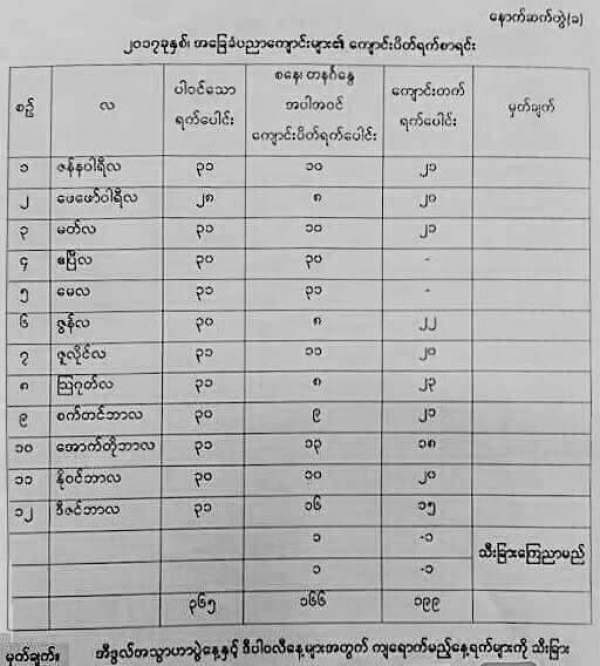 နောက်ဆက်တွဲ(ခ)
၂၀၁၇ခုနှစ်၊ အခြေခံပညာကျောင်းများ၏ ကျောင်းပိတ်ရက်စာရင်း
စဉ် လ ပါဝင်သော ရက်ပေါင်း စနေ၊ တနင်္ဂနွေ အပါအဝင် ကျောင်းပိတ်ရက်ပေါင်း ကျောင်းတက် ရက်ပေါင်း မှတ်ချက်
၁ ဇန်နဝါရီလ ၃၁ ၁၀ ၂၁
၂ ဖေဖော်ဝါရီလ ၂၈ ၈ ၂၀
၃ မတ်လ ၃၁ ၁၀ ၂၁
၄ ဧပြီလ ၃၀ ၃၀ -
၅ မေလ ၃၁ ၃၁ -
၆ ဇွန်လ ၃၀ ၈ ၂၂
၇ ဇူလိုင်လ ၃၁ ၁၁ ၂၀
၈ ဩဂုတ်လ ၃၁ ၈ ၂၃
၉ စက်တင်ဘာလ ၃၀ ၉ ၂၁
၁၀ အောက်တိုဘာလ ၃၁ ၁၃ ၁၈
၁၁ နိုဝင်ဘာလ ၃၀ ၁၀ ၂၀
၁၂ ဒီဇင်ဘာလ ၃၁ ၁၆ ၁၅
၁ -၁ သီးခြားကြေညာမည်
၁ -၁
၃၆၅ ၁၆၆ ၁၉၉
မှတ်ချက်။ အီဒွလ်အဿွာဟာပွဲနေ့နှင့် ဒီပါဝလီနေ့များအတွက် ကျရောက်မည့်နေ့ရက်များကို သီးခြား